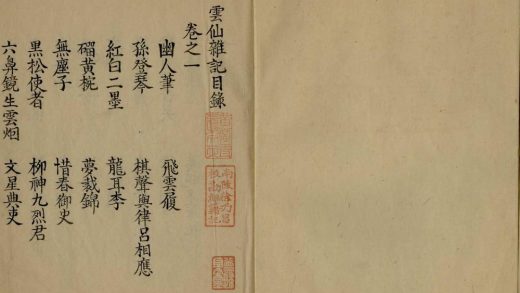 雲仙雜記目錄
卷之一
幽人筆 飛雲履
孫登琴 棋聲與律呂相應
紅白二墨 龍耳李
磂黃椀 夢裁錦
無塵子 惜春御史
黑松使者 柳神九烈君
六鼻鏡生雲烟 文星典吏
南陵徐乃昌
校勘經籍記